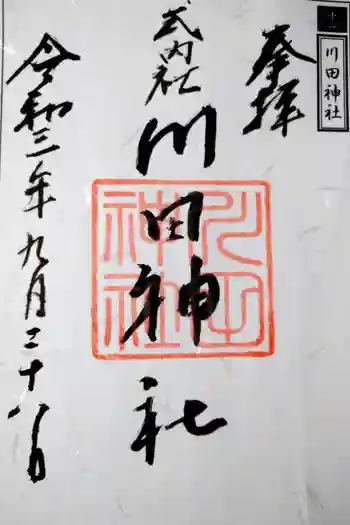 十一
川田神社
奉拝
式内社
川田神社
川田
神社
令和三年九月二十八日